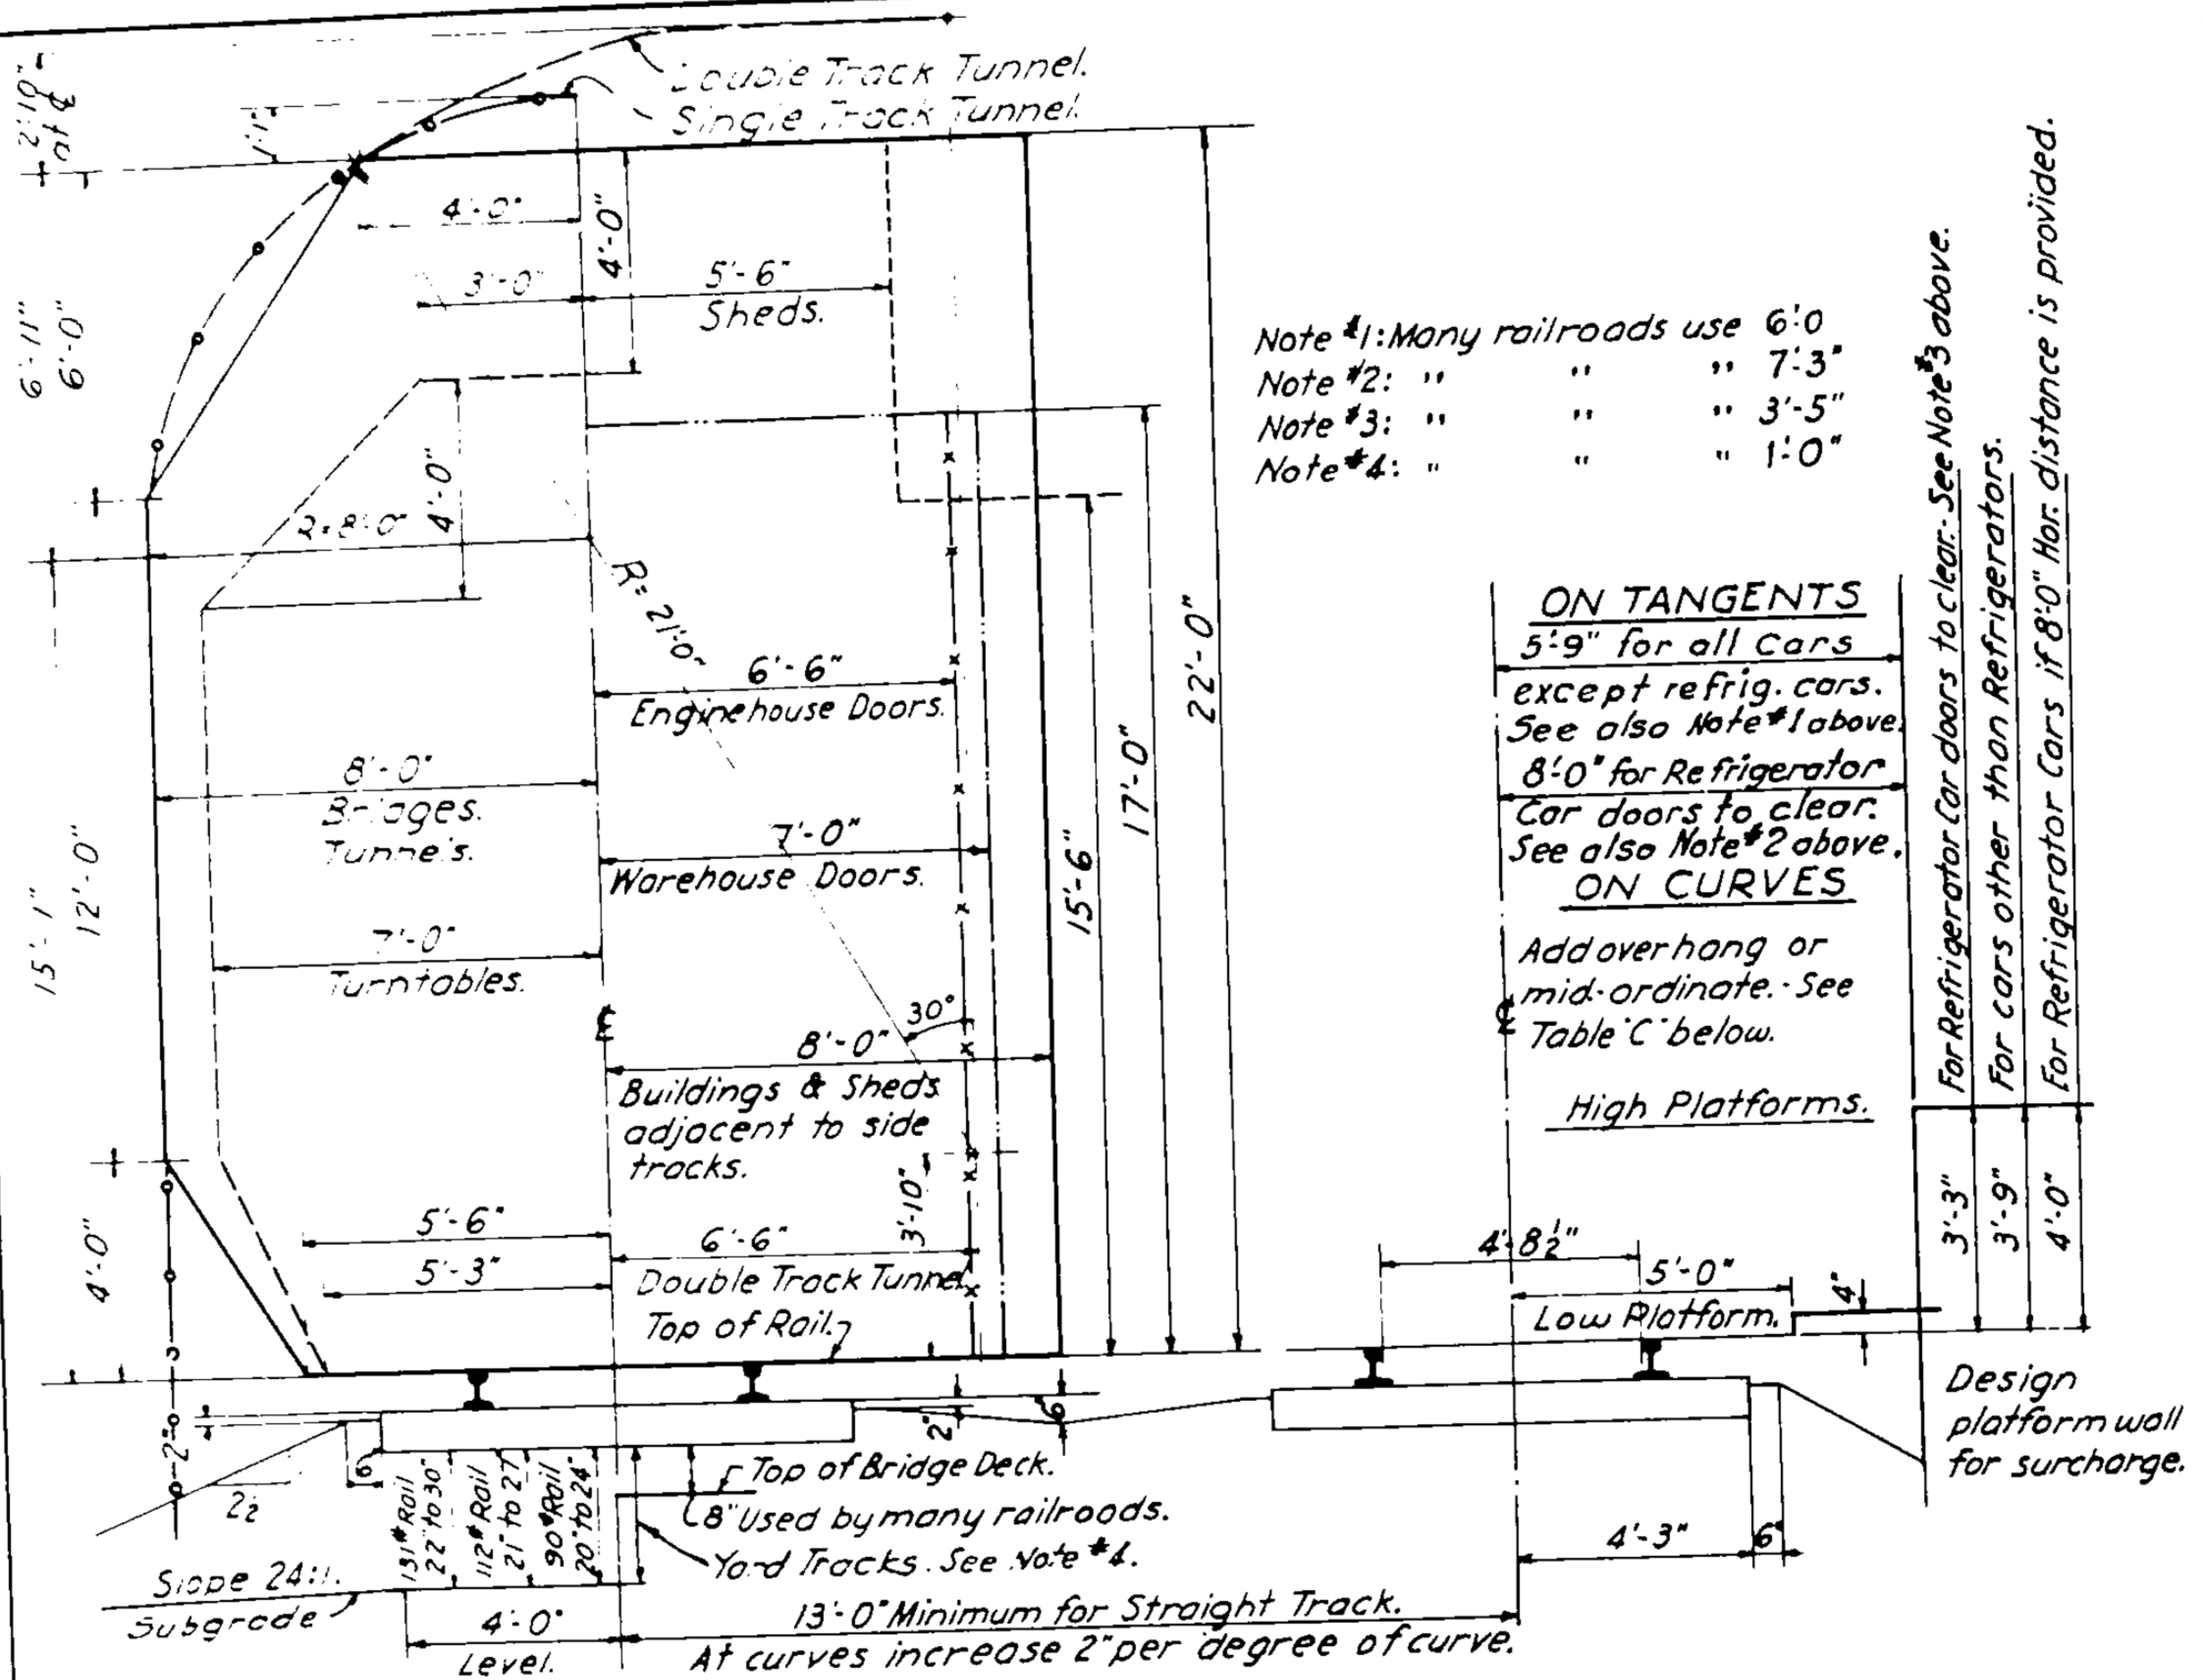 Double Track Tunnel.
Single Track Tunnel.
2'-10"
at ℄
1'-1"
4'-0"
3'-0"
4'-0"
5'-6"
Sheds.
6'-11"
6'-0"
4'-0"
R=8'-0"
R=21'-0"
Note #1: Many railroads use 6'-0
Note #2: " " " 7'-3"
Note #3: " " " 3'-5"
Note #4: " " " 1'-0"
6'-6"
Enginehouse Doors.
8'-0"
Bridges.
Tunnels.
7'-0"
Warehouse Doors.
7'-0"
Turntables.
15'-1"
12'-0"
15'-6"
17'-0"
22'-0"
℄
30°
8'-0"
Buildings & Sheds
adjacent to side
tracks.
4'-0"
5'-6"
5'-3"
6'-6"
3'-10"
Double Track Tunnel
Top of Rail.
ON TANGENTS
5'-9" for all Cars
except refrig. cars.
See also Note #1 above.
8'-0" for Refrigerator
Car doors to clear.
See also Note #2 above.
ON CURVES
Add overhang or
mid-ordinate.-See
℄
Table "C" below.
High Platforms.
For Refrigerator Car doors to clear.-See Note #3 above.
For cars other than Refrigerators.
For Refrigerator Cars if 8'-0" Hor. distance is provided.
3'-3"
3'-9"
4'-0"
4'-8½"
5'-0"
4"
Low Platform.
Design
platform wall
for surcharge.
2"
6"
2"
6"
2½
131# Rail
22" to 30"
112# Rail
21" to 27"
90# Rail
20" to 24"
Top of Bridge Deck.
8" Used by many railroads.
Yard Tracks. See Note #4.
4'-3"
6"
Slope 24:1.
Subgrade
4'-0"
Level.
13'-0" Minimum for Straight Track.
At curves increase 2" per degree of curve.